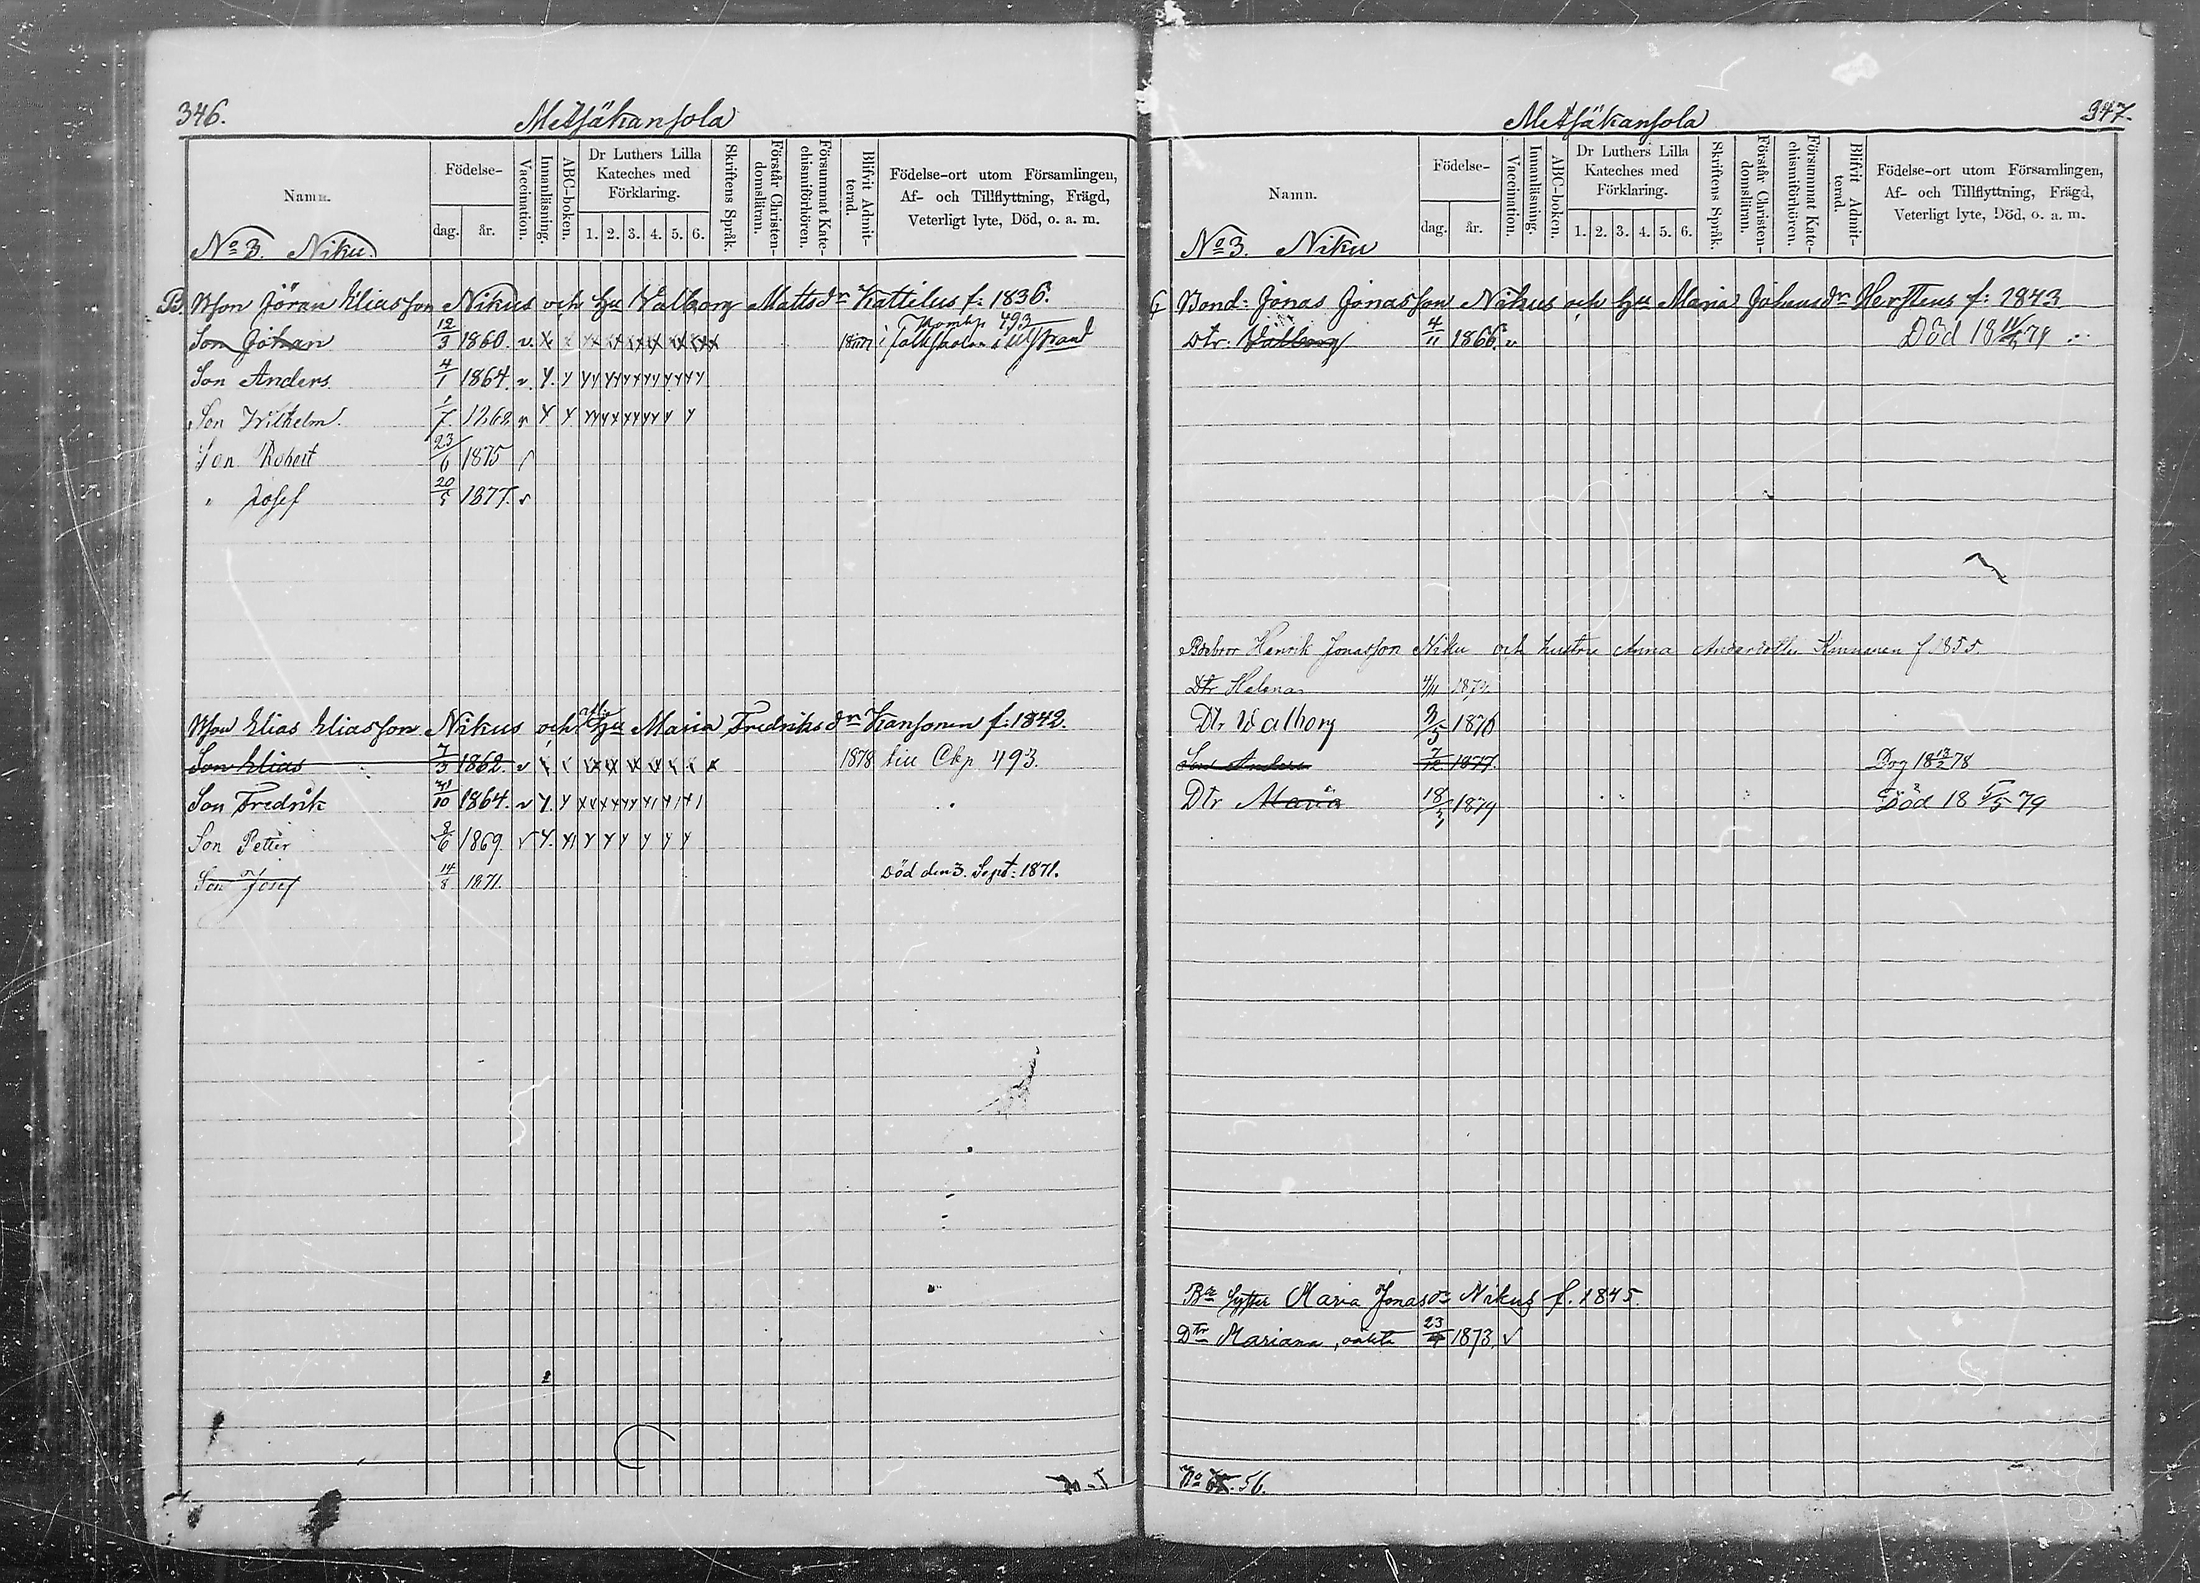 346.
Metsäkansola
Namn.
Födelse-
dag.
år.
Vaccination.
Innanläsning.
ABC-boken.
Dr Luthers Lilla
Kateches med
Förklaring.
1. 2. 3. 4. 5. 6.
Skriftens Språk.
Förstår Christen-
domsläran.
Försummat Kate-
chismiförhören.
Blifvit Admit-
terad.
Födelse-ort utom Församlingen,
Af- och Tillflyttning, Frägd,
Veterligt lyte, Död, o. a. m.
No 3. Niku.
B. Mson Jöran Eliasson Nikus och Hu Valborg Mattsdr Kattilus f: 1836.
Son Johan 12/3 1860. v. 493
Son Anders 4/1 1864. v
Son Wilhelm. 1/7. 1868 v
Son Robert 23/6 1875
" Josef 20/5 1877. v
Mson Elias Eliasson Nikus och Hu Maria Fredriksdr Kansonen f: 1842.
Son Elias 7/3 1862. v 1878 till Ckp 493.
Son Fredrik 31/10 1864. v
Son Petter 8/6 1869. v
Son Josef 14/8 1871. Död den 3. Sept: 1871.
347.
Metsäkansola
Namn.
Födelse-
dag.
år.
Vaccination.
Innanläsning.
ABC-boken.
Dr Luthers Lilla
Kateches med
Förklaring.
1. 2. 3. 4. 5. 6.
Skriftens Språk.
Förstår Christen-
domsläran.
Försummat Kate-
chismiförhören.
Blifvit Admit-
terad.
Födelse-ort utom Församlingen,
Af- och Tillflyttning, Frägd,
Veterligt lyte, Död, o. a. m.
No 3. Niku
Bond: Jonas Jonasson Nikus och Hu Maria Johansdr Herstens f: 1843
Dtr. Valborg 4/11 1866. v Död 18 79
Henrik Jonasson Niku och hustru Anna Kinnanen f 1855.
Dtr Helena 4/11
Dtr Walborg 3/5 1876
Son Anders 7/12 1877. Dog 18 13/2 78
Dtr Maria 18/3 1879 Död 18 5/5 79
Syster Maria Jonasdr Nikus f. 1845.
Dtr Mariana, oäkta 23/4 1873. v
No 56.